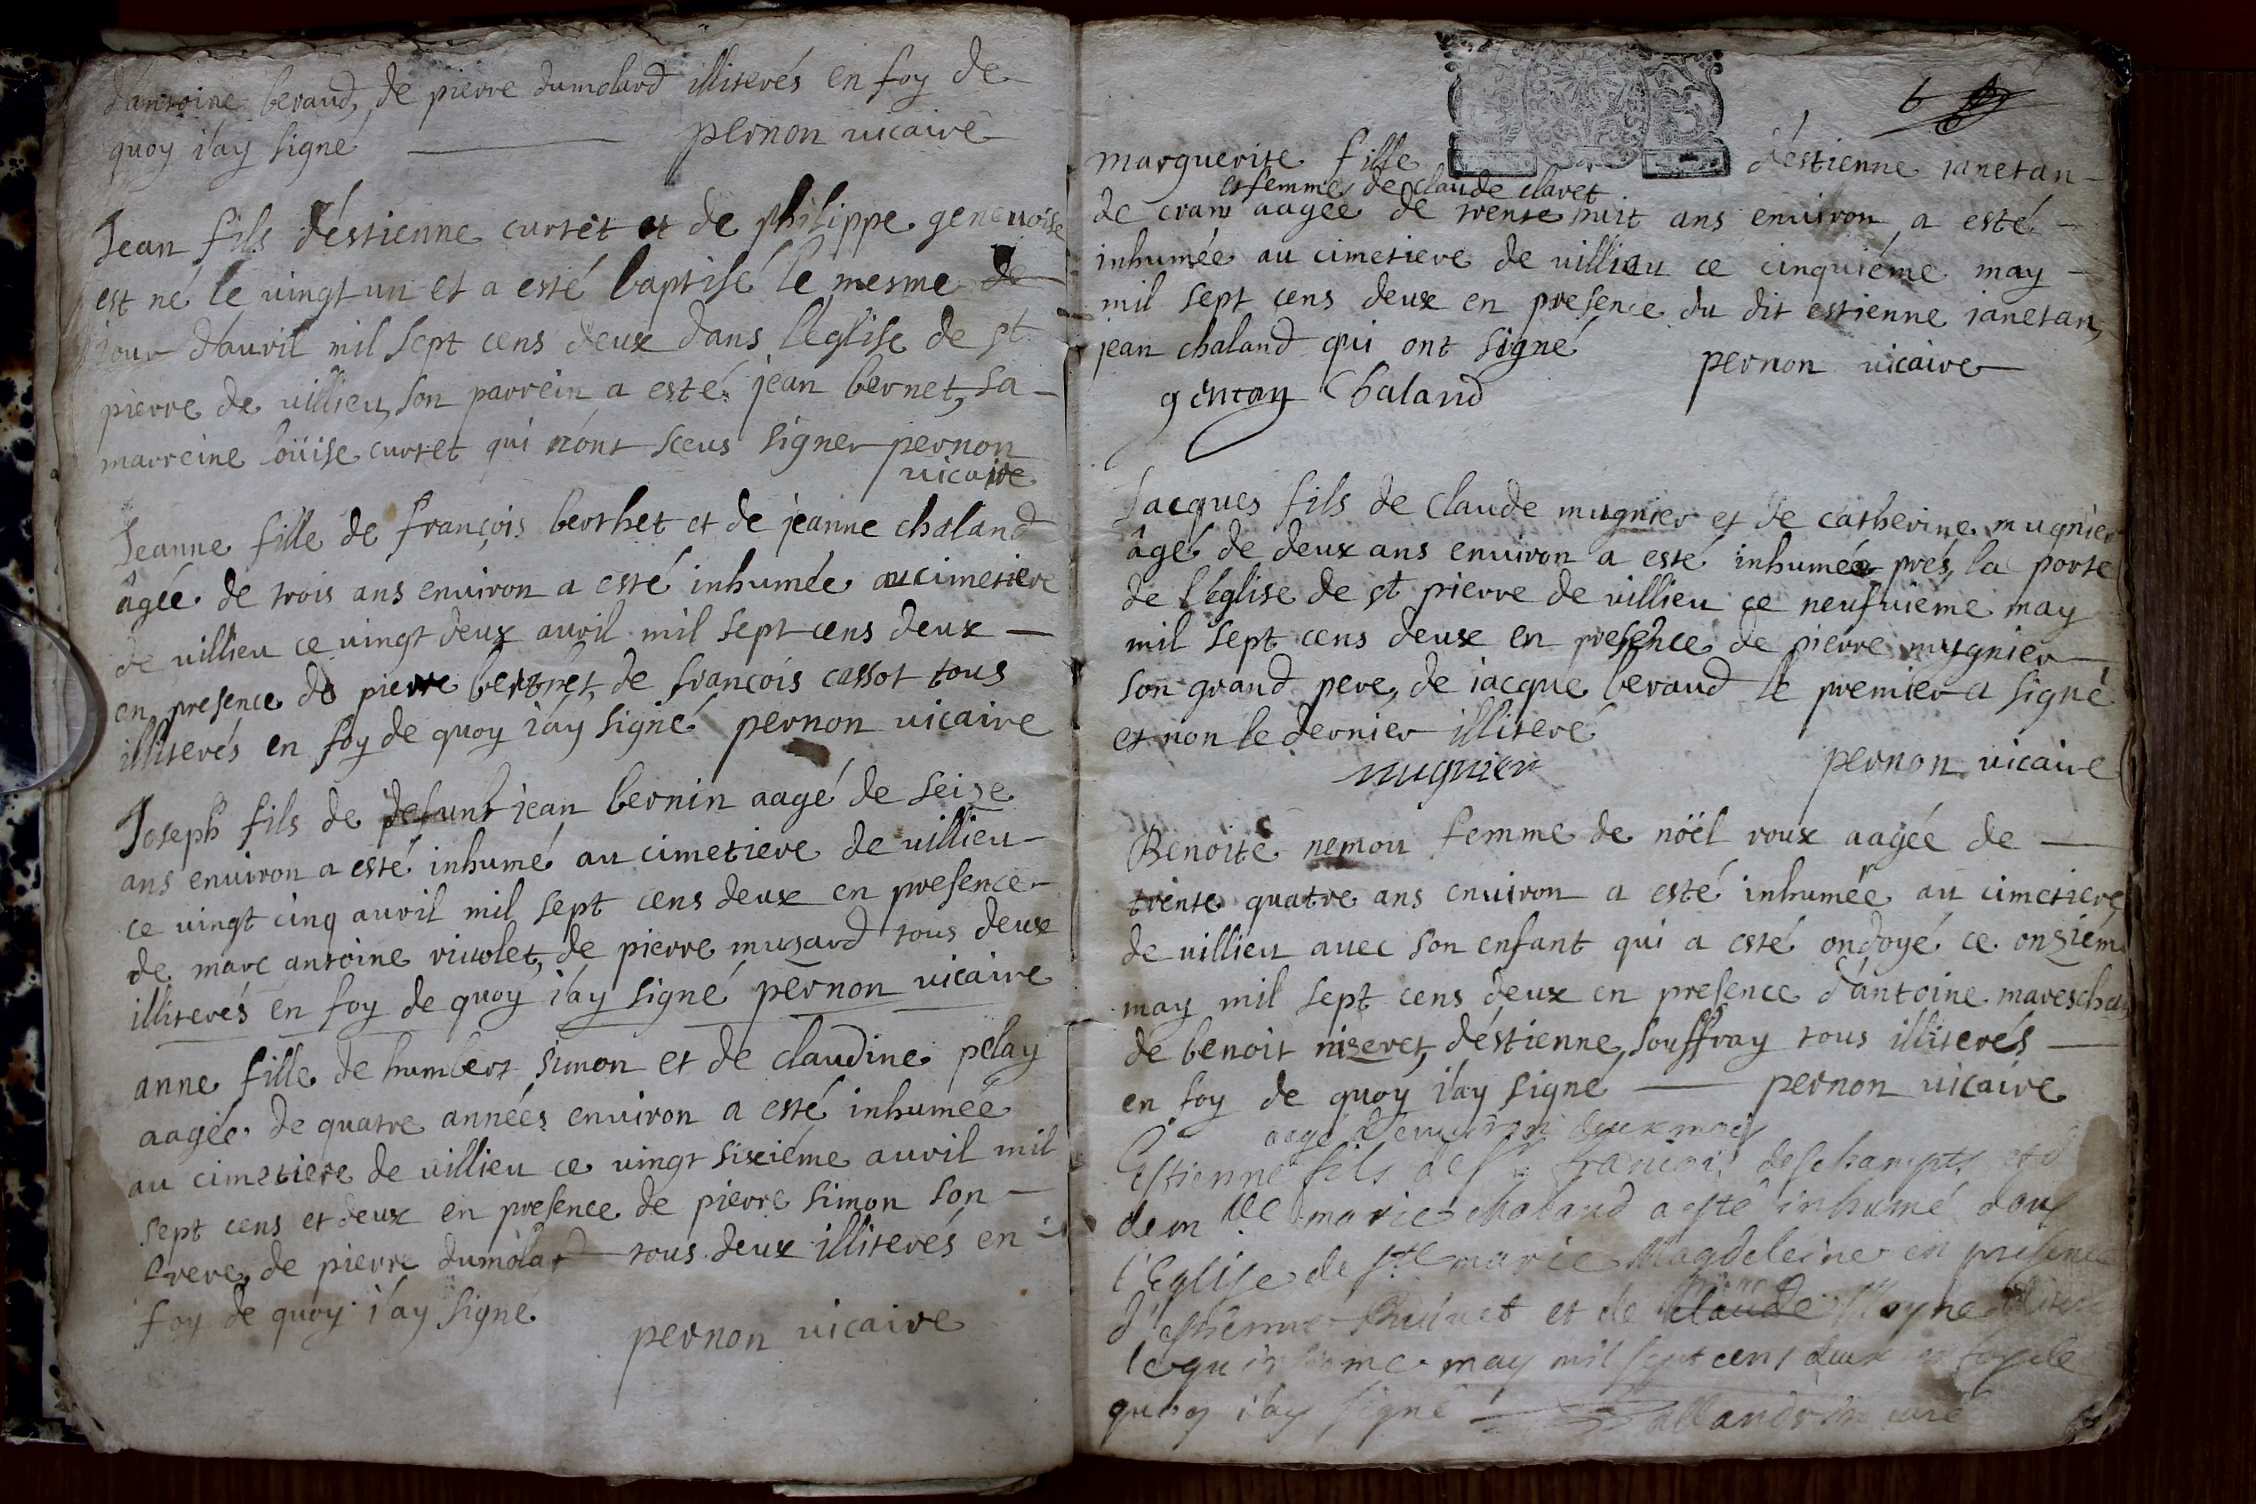 d'antoine beraud, de pierre dumolard illiterés en foy de
quoy i'ay signé pernon vicaire
Jean fils d'éstienne curtet et de philippe genevoise
est né le vingt un et a esté baptisé le mesme
jour d'auvril mil sept cens deux dans l'eglise de st
pierre de villieu, son parrein a esté jean bernet, sa
marreine loüise curtet qui n'ont sceus signer pernon
vicaire
Jeanne fille de françois berthet et de jeanne chaland
âgée de trois ans environ a esté inhumée au cimetiere
de villieu ce vingt deux avril mil sept cens deux
en presence de pierre de françois cassot tous
illiterés en foy de quoy i'ay signé pernon vicaire
Joseph fils de defunt jean bernin aagé de seize
ans environ a esté inhumé au cimetiere de villieu
ce vingt cinq avril mil sept cens deux en presence
de marc antoine rivolet, de pierre muzard tous deux
illiterés en foy de quoy i'ay signé pernon vicaire
anne fille de humbert simon et de claudine pelay
aagée de quatre années environ a esté inhumée
au cimetiere de villieu ce vingt sixiéme avril mil
sept cens et deux en presence de pierre simon son
frere, de pierre dumolard tous deux illiterés en
foy de quoy i'ay signé
pernon vicaire
6
marguerite fille d'éstienne janetan
et femme de claude claret
de crans aagée de trente huit ans environ a esté
inhumée au cimetiere de villieu ce cinquiéme may
mil sept cens deux en presence du dit estienne janetan,
jean chaland qui ont signé pernon vicaire
Chaland
Jacques fils de claude mugnier et de catherine mugnier
âgé de deux ans environ a esté inhumé prés la porte
de l'église de st pierre de villieu ce neufvieme may
mil sept cens deux en presence de pierre mugnier
son grand pere, de jacque beraud le premier a signé
et non le dernier illiteré
mugnier pernon vicaire
Benoite nemou femme de nöel roux aagée de
trente quatre ans environ a esté inhumée au cimetiere
de villieu avec son enfant qui a esté ondoyé ce onziém
may mil sept cens deux en presence d'antoine mareschal
de benoit nizeret, d'éstienne souffray tous illiterés
en foy de quoy i'ay signé pernon vicaire
aagé d'environ deux mois
Estienne fils de sr françois deschamps et d
dem lle marie chaland a esté inhumé dans
l'Eglise de ste marie Magdeleine en presence
d'estienne et de claude Moyne
le quinsieme may mil sept cens deux en foy de
quoy i'ay signé curé